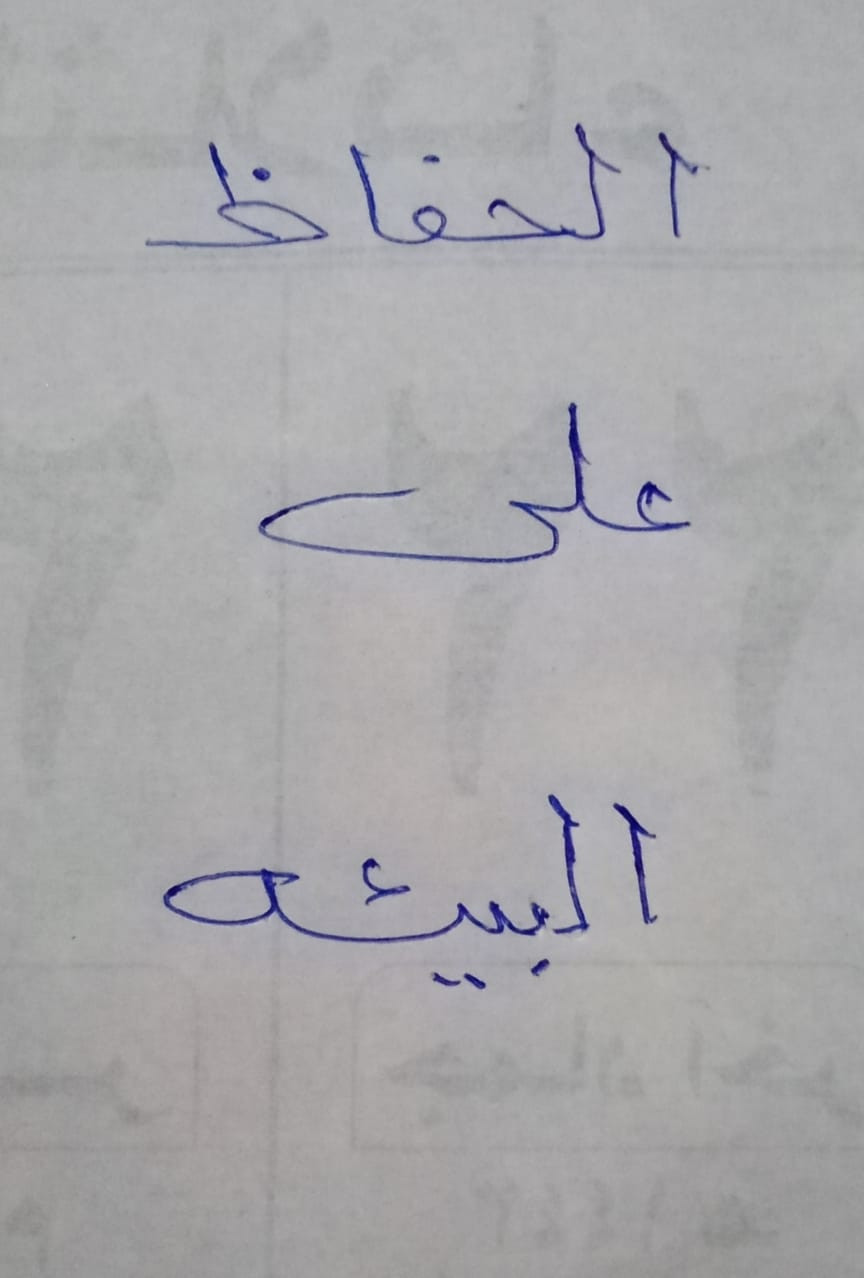 الحفاظ
على
البيئه